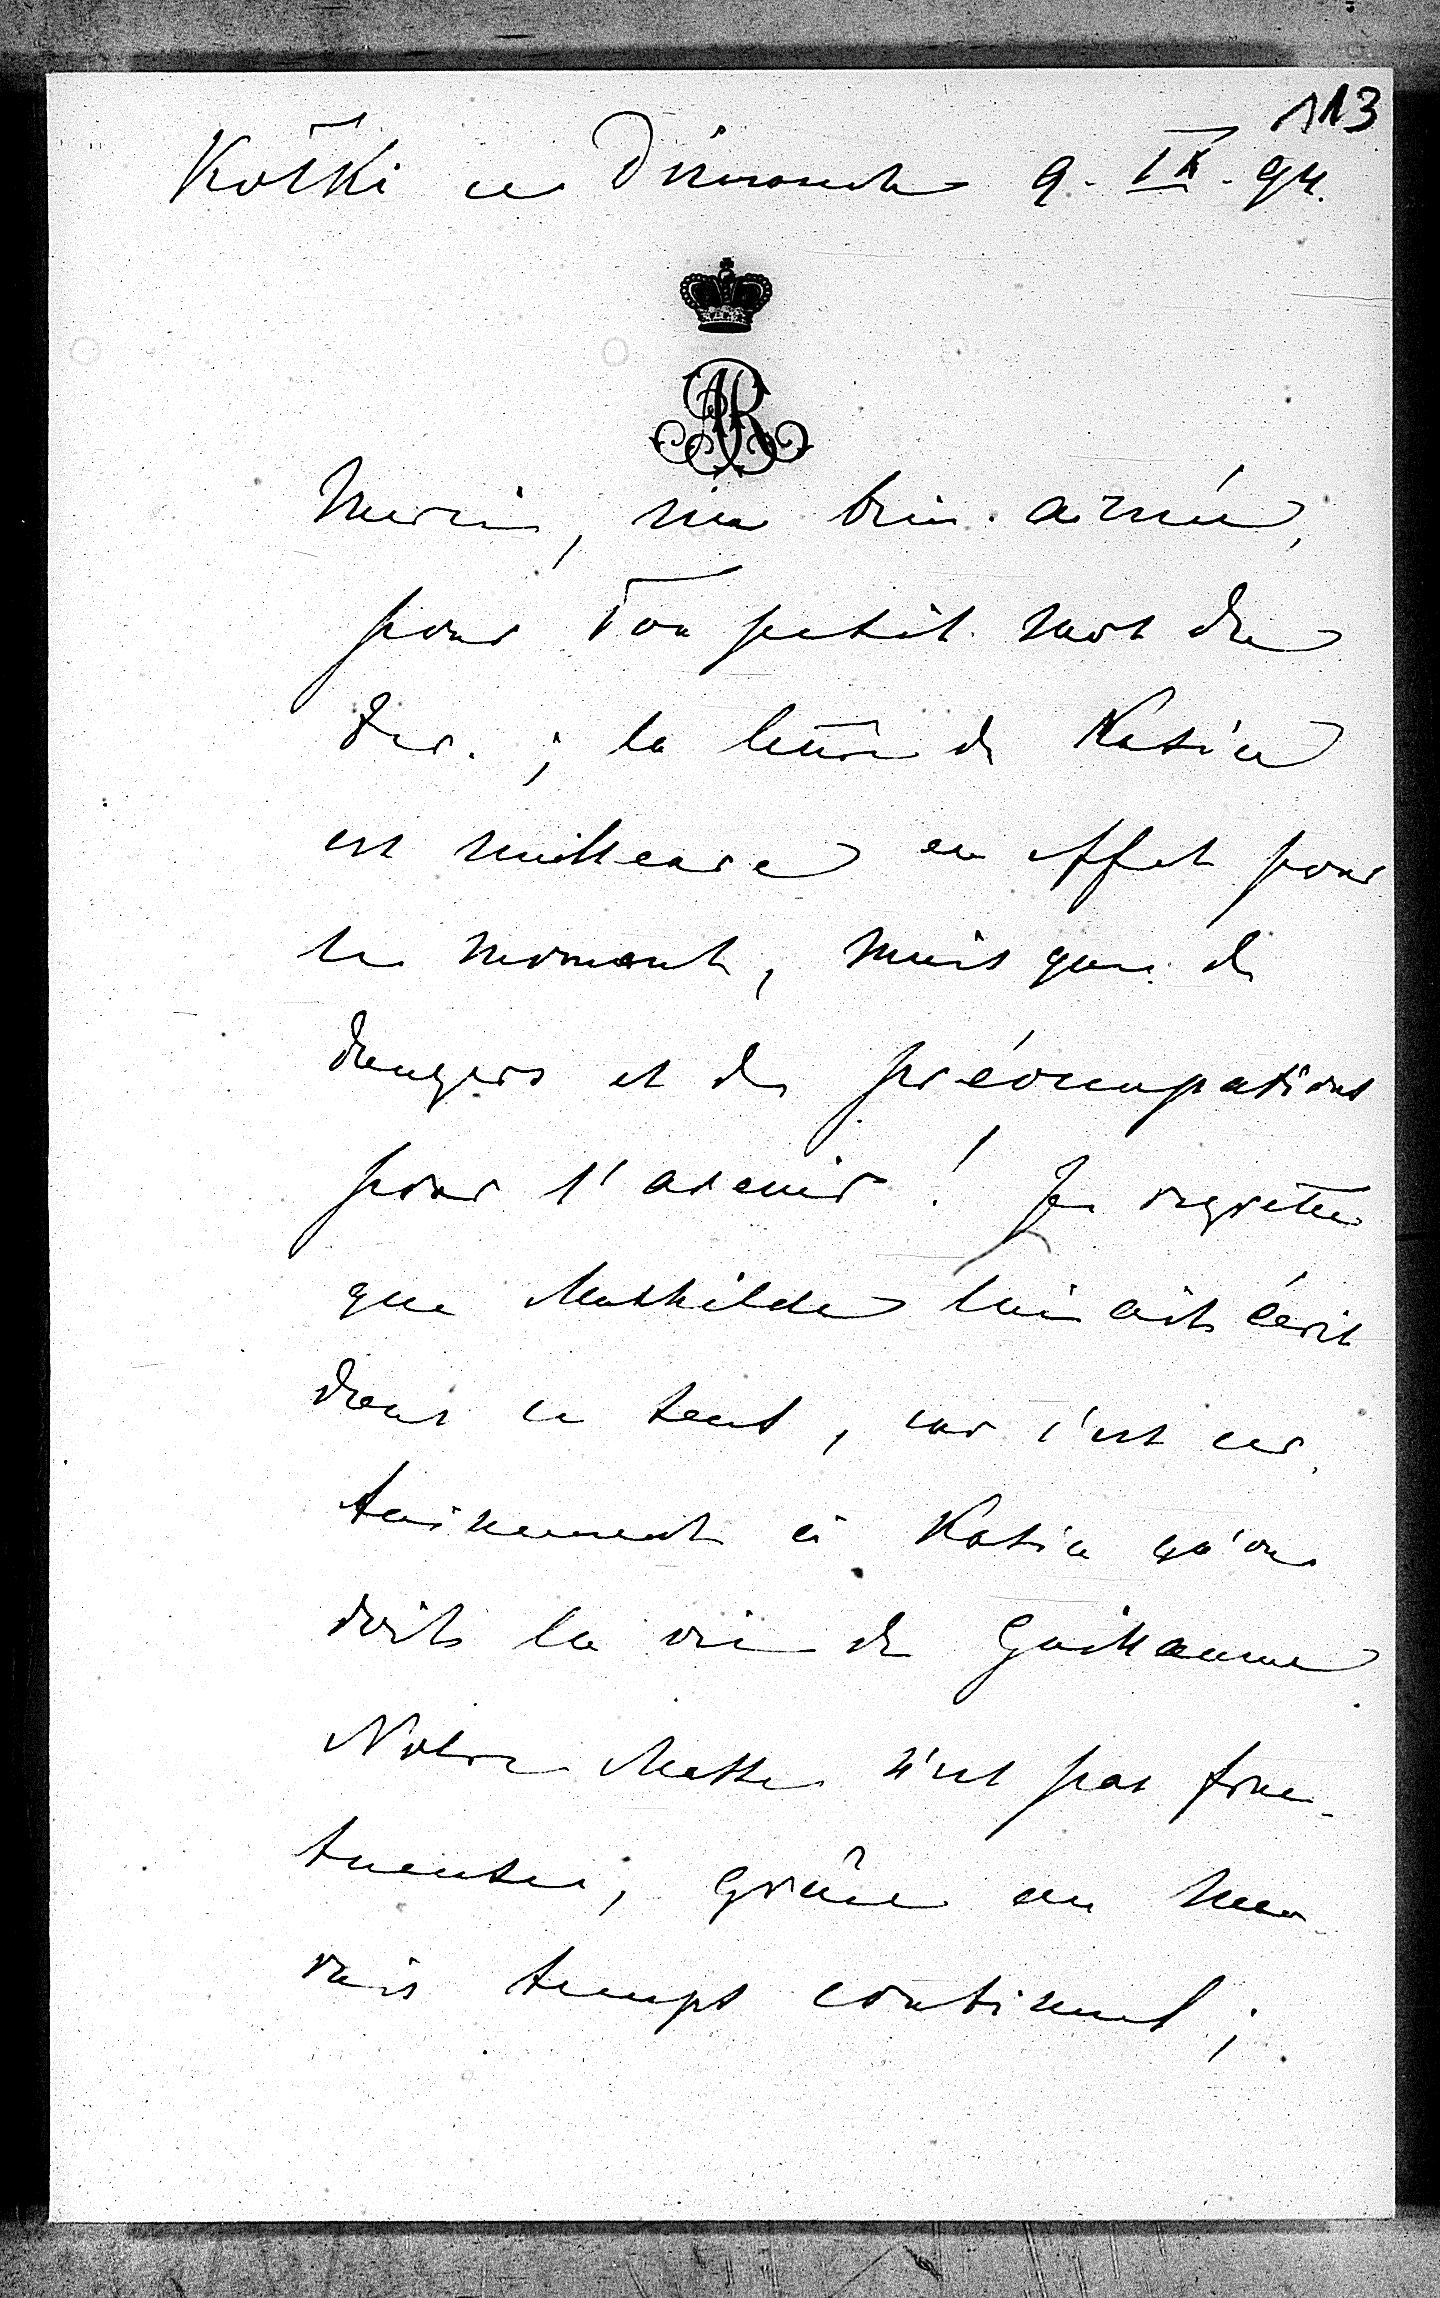 113
Koški ce Dimanche 9. IX. 94.
AR
Merci, ma bien-aimée,
pour Ton petit mot de
; la lettre de Kasia
est meilleure en effet pour
le moment, mais que de
dangers et de préoccupations
pour l'avenir ! Je regrette
que Mathilde lui ait écrit
dans ce sens, car c'est cer-
tainement à Kasia qu'on
doit la vie de Guillaume
Notre n'est pas fruc-
tueuse, grâce au mau-
vais temps continuel ;